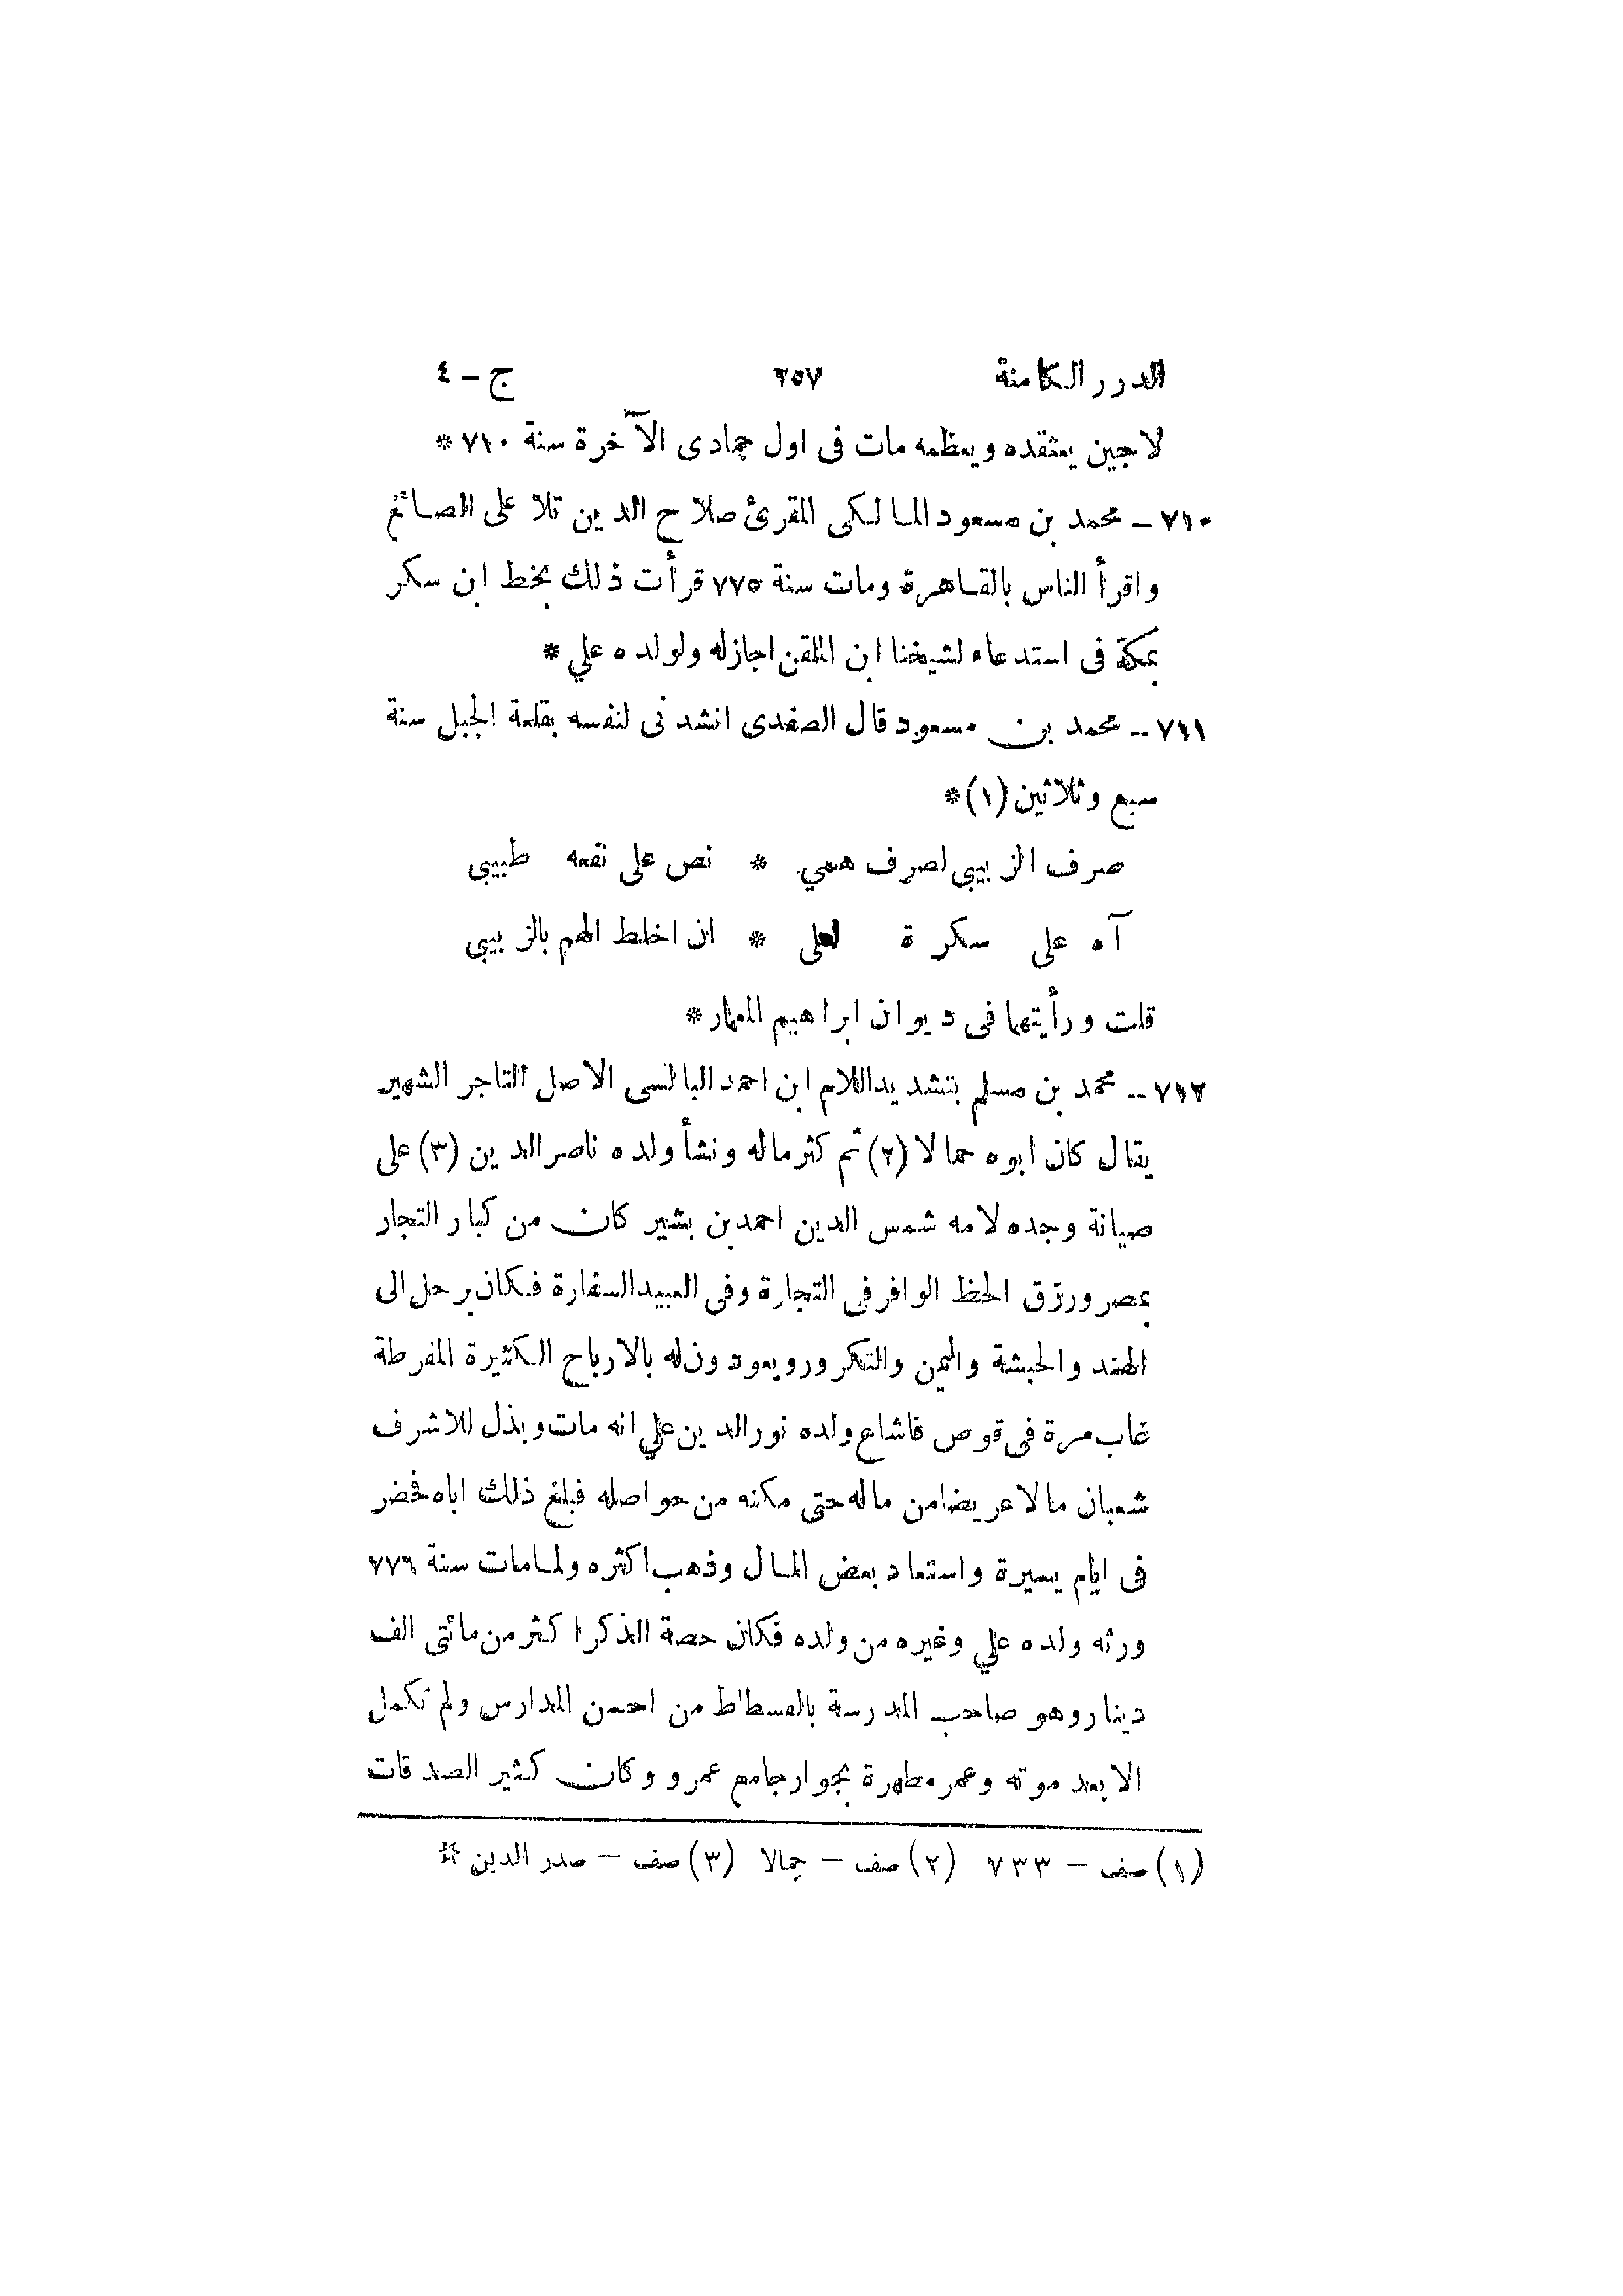 الدرر الكامنة ٢٥٧ ج – ٤
لاجين يعتقده ويعظمه مات فى اول جمادى الآخرة سنة ٧١٠ *
٧١٠ – محمد بن مسعود المالكى المقرئ صلاح الدين تلا على الصائغ
واقرأ الناس بالقاهرة ومات سنة ٧٧٥ قرأت ذلك بخط ابن سكر
بمكة فى استدعاء لشيخنا ابن الملقن اجازله ولولده علي *
٧١١ -- محمد بن مسعود قال الصفدى انشدنى لنفسه بقلعة الجبل سنة
سبع وثلاثين (١) *
صرف الزبيبى لصرف همي * نص على نفعه طبيبى
آه على سكرة لعلى * ان اخلط الهم بالزبيبى
قلت ورأيتهما فى ديوان ابراهيم المعمار *
٧١٢ -- محمد بن مسلم بتشديد اللام ابن احمد البالسى الاصل التاجر الشهير
يقال كان ابوه حمالا (٢) ثم كثر ماله ونشأ ولده ناصر الدين (٣) على
صيانة وجده لامه شمس الدين احمد بن بشير كان من كبار التجار
بمصر ورزق الحظ الوافر فى التجارة وفى العبيد السفارة فكان يرحل الى
الهند والحبشة واليمن والتكرور ويعودون له بالارباح الكثيرة المفرطة
غاب مرة فى قوص فاشاع ولده نور الدين علي انه مات وبذل للاشرف
شعبان مالا عريضا من ماله حتى مكنه من حواصله فبلغ ذلك اباه فحضر
فى ايام يسيرة واستعاد بعض المال وذهب اكثره ولما مات سنة ٧٧٦
ورثه ولده علي وغيره من ولده فكان حصة الذكر اكثر من مائتى الف
دينار وهو صاحب المدرسة بالفسطاط من احسن المدارس ولم تكمل
الا بعد موته وعمر مطهرة بجوار جامع عمرو وكان كثير الصدقات
(١) صف – ٧٣٣ (٢) صف – جمالا (٣) صف – صدر الدين *